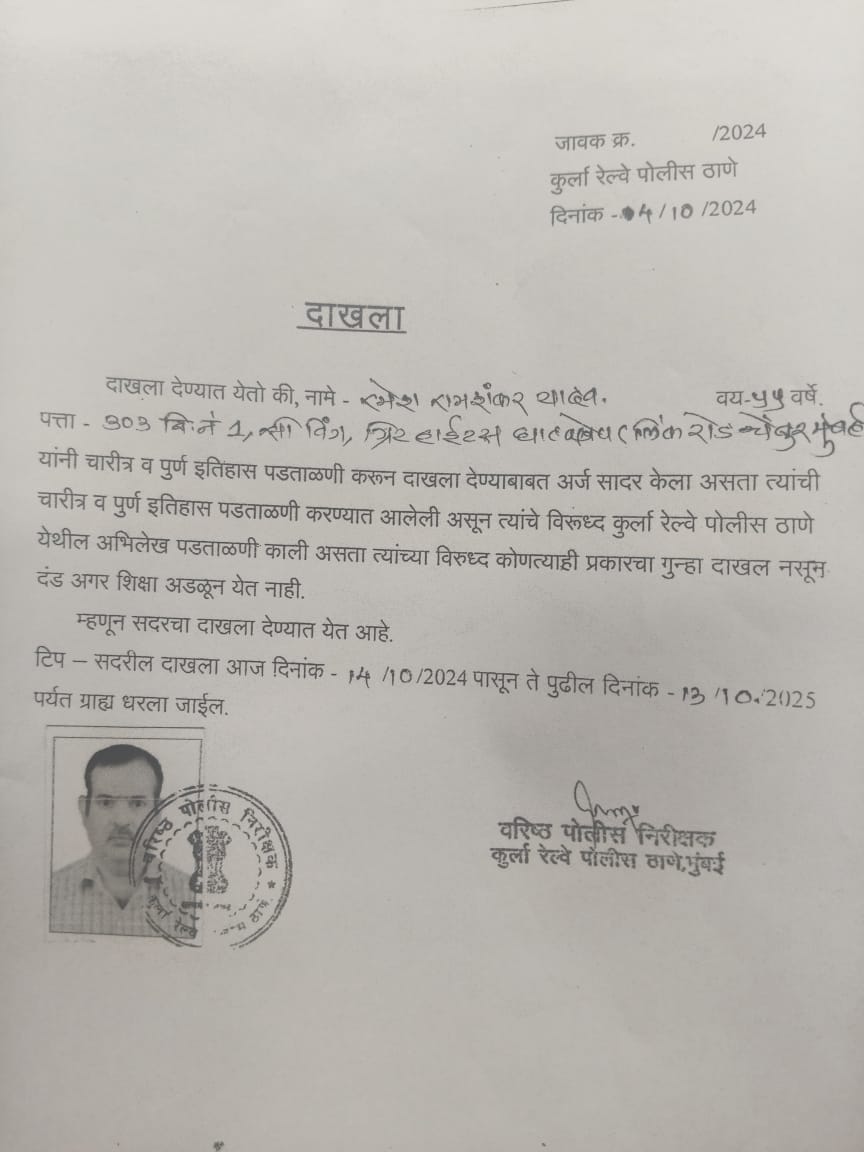 जावक क्र. /2024
कुर्ला रेल्वे पोलीस ठाणे
दिनांक - 04/10/2024
दाखला
दाखला देण्यात येतो की, नामे - रमेश रामशंकर यादव. वय-५५ वर्षे.
पत्ता - 303 बि.नं 1, सी विंग, हाईटस लिंक रोड चेंबुर मुंबई
यांनी चारीत्र व पुर्ण इतिहास पडताळणी करून दाखला देण्याबाबत अर्ज सादर केला असता त्यांची
चारीत्र व पुर्ण इतिहास पडताळणी करण्यात आलेली असून त्यांचे विरूध्द कुर्ला रेल्वे पोलीस ठाणे
येथील अभिलेख पडताळणी काली असता त्यांच्या विरुध्द कोणत्याही प्रकारचा गुन्हा दाखल नसून
दंड अगर शिक्षा अडळून येत नाही.
म्हणून सदरचा दाखला देण्यात येत आहे.
टिप – सदरील दाखला आज दिनांक - 14/10/2024 पासून ते पुढील दिनांक - 13/10/2025
पर्यत ग्राह्य धरला जाईल.
वरिष्ठ पोलीस निरीक्षक
कुर्ला रेल्वे
वरिष्ठ पोलीस निरीक्षक
कुर्ला रेल्वे पोलीस ठाणे,मुंबई